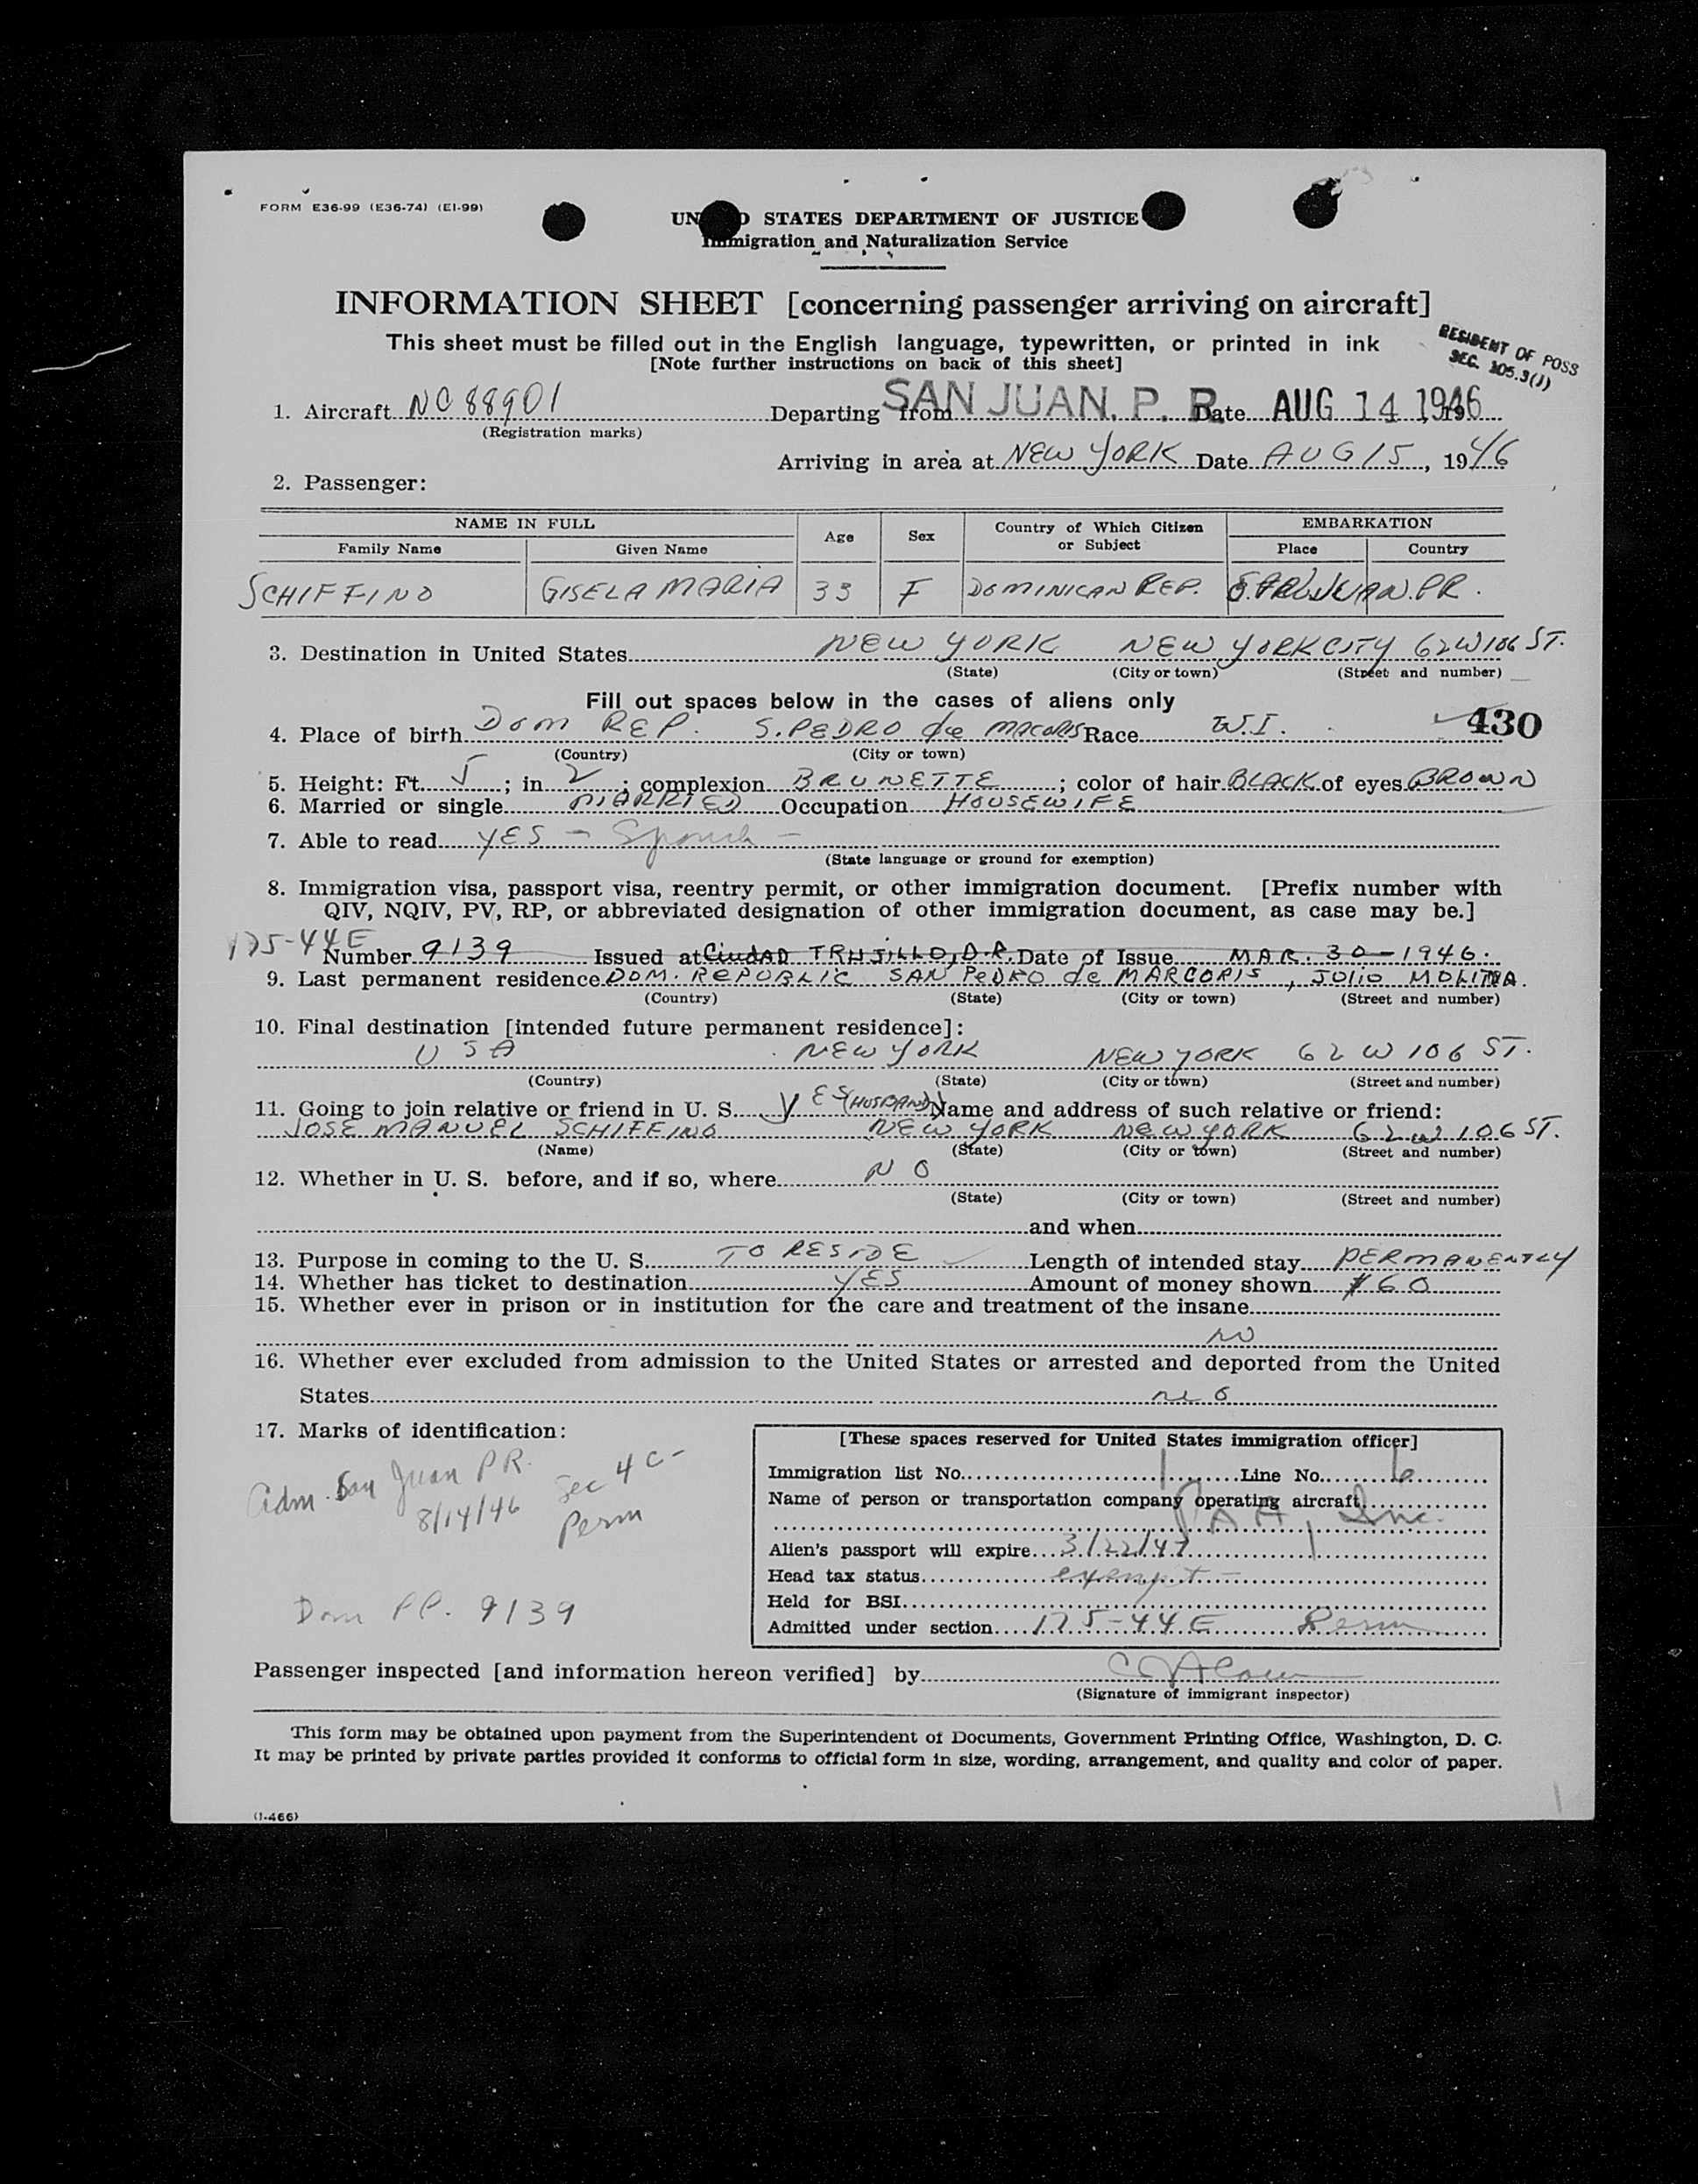 FORM E36-99 (E36-74) (EI-99)
UN D STATES DEPARTMENT OF JUSTICE
Immigration and Naturalization Service
INFORMATION SHEET [concerning passenger arriving on aircraft]
This sheet must be filled out in the English language, typewritten, or printed in ink
[Note further instructions on back of this sheet]
RESIDENT OF POSS
SEC. 105.3(J)
1. Aircraft NC 88901 Departing from SAN JUAN, P. R. Date AUG 14 1946
(Registration marks)
Arriving in area at NEW YORK Date AUG 15, 1946
2. Passenger:
NAME IN FULL Age Sex Country of Which Citizen or Subject EMBARKATION
Family Name Given Name Place Country
SCHIFFINO GISELA MARIA 33 F DOMINICAN REP. SAN JUAN. PR.
3. Destination in United States NEW YORK NEW YORK CITY 62 W 106 ST.
(State) (City or town) (Street and number)
Fill out spaces below in the cases of aliens only
4. Place of birth DOM REP. S. PEDRO de MACORIS Race W.I. 430
(Country) (City or town)
5. Height: Ft. 5; in 2; complexion BRUNETTE; color of hair BLACK of eyes BROWN
6. Married or single MARRIED Occupation HOUSEWIFE
7. Able to read YES - Spanish -
(State language or ground for exemption)
8. Immigration visa, passport visa, reentry permit, or other immigration document. [Prefix number with
QIV, NQIV, PV, RP, or abbreviated designation of other immigration document, as case may be.]
175-44E
Number 9139 Issued at CiudAD TRUJILLO, D.R. Date of Issue MAR. 30-1946.
9. Last permanent residence DOM. REPUBLIC SAN PeDRO de MARCORIS, JULIO MOLINA.
(Country) (State) (City or town) (Street and number)
10. Final destination [intended future permanent residence]:
USA NEW YORK NEW YORK 62 W 106 ST.
(Country) (State) (City or town) (Street and number)
11. Going to join relative or friend in U. S. YES (HUSBAND) Name and address of such relative or friend:
JOSE MANUEL SCHIFFINO NEW YORK NEW YORK 62 W 106 ST.
(Name) (State) (City or town) (Street and number)
12. Whether in U. S. before, and if so, where NO
(State) (City or town) (Street and number)
and when
13. Purpose in coming to the U. S. TO RESIDE Length of intended stay PERMANENTLY
14. Whether has ticket to destination YES Amount of money shown $60
15. Whether ever in prison or in institution for the care and treatment of the insane
NO
16. Whether ever excluded from admission to the United States or arrested and deported from the United
States NO
17. Marks of identification:
Adm. San Juan P R. Sec 4 C-
8/14/46 Perm
Dom PP. 9139
[These spaces reserved for United States immigration officer]
Immigration list No. 1 Line No. 6
Name of person or transportation company operating aircraft
PAA, Inc.
Alien's passport will expire 3/22/47
Head tax status exempt -
Held for BSI
Admitted under section 175-44E Perm
Passenger inspected [and information hereon verified] by
(Signature of immigrant inspector)
This form may be obtained upon payment from the Superintendent of Documents, Government Printing Office, Washington, D. C.
It may be printed by private parties provided it conforms to official form in size, wording, arrangement, and quality and color of paper.
(I-466)